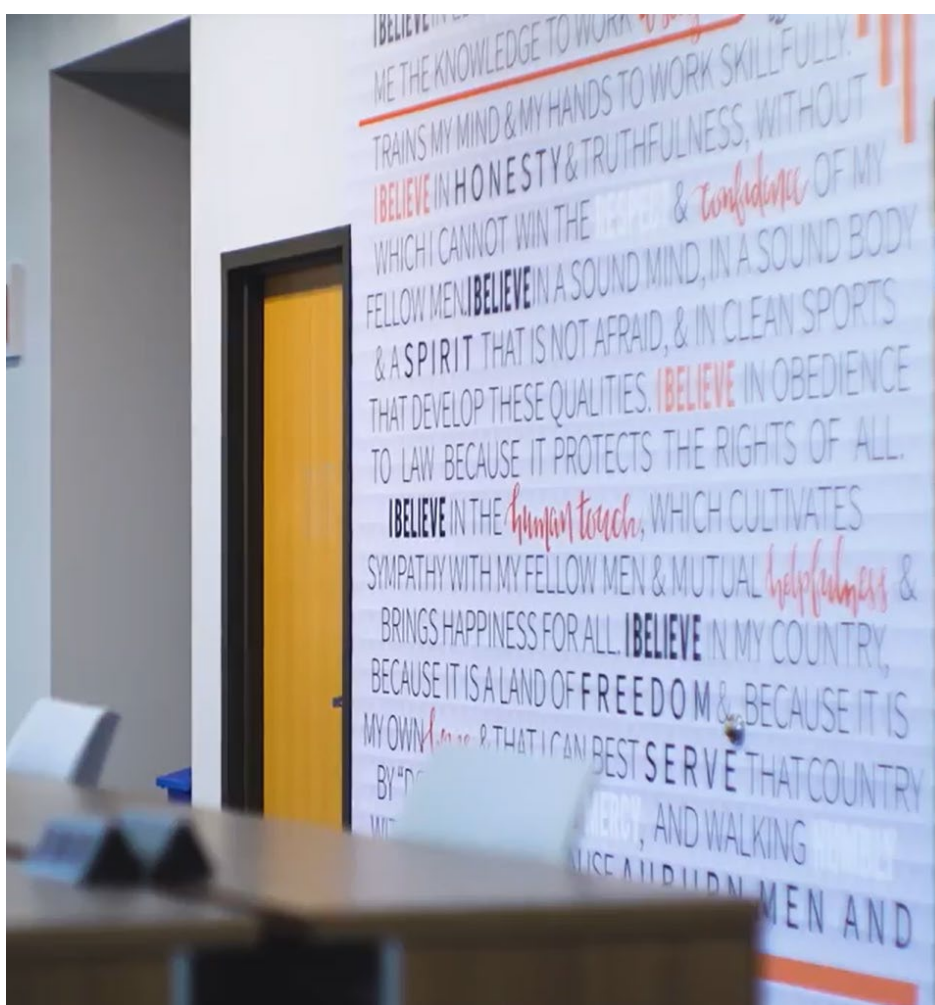 I BELIEVE IN
ME THE KNOWLEDGE TO WORK
TRAINS MY MIND & MY HANDS TO WORK SKILLFULLY.
I BELIEVE IN HONESTY & TRUTHFULNESS, WITHOUT
WHICH I CANNOT WIN THE RESPECT & confidence OF MY
FELLOW MEN. I BELIEVE IN A SOUND MIND, IN A SOUND BODY
& A SPIRIT THAT IS NOT AFRAID, & IN CLEAN SPORTS
THAT DEVELOP THESE QUALITIES. I BELIEVE IN OBEDIENCE
TO LAW BECAUSE IT PROTECTS THE RIGHTS OF ALL.
I BELIEVE IN THE human touch, WHICH CULTIVATES
SYMPATHY WITH MY FELLOW MEN & MUTUAL helpfulness &
BRINGS HAPPINESS FOR ALL. I BELIEVE IN MY COUNTRY,
BECAUSE IT IS A LAND OF FREEDOM & BECAUSE IT IS
MY OWN home & THAT I CAN BEST SERVE THAT COUNTRY
BY "D
MERCY, AND WALKING HUMBLY
AUBURN MEN AND